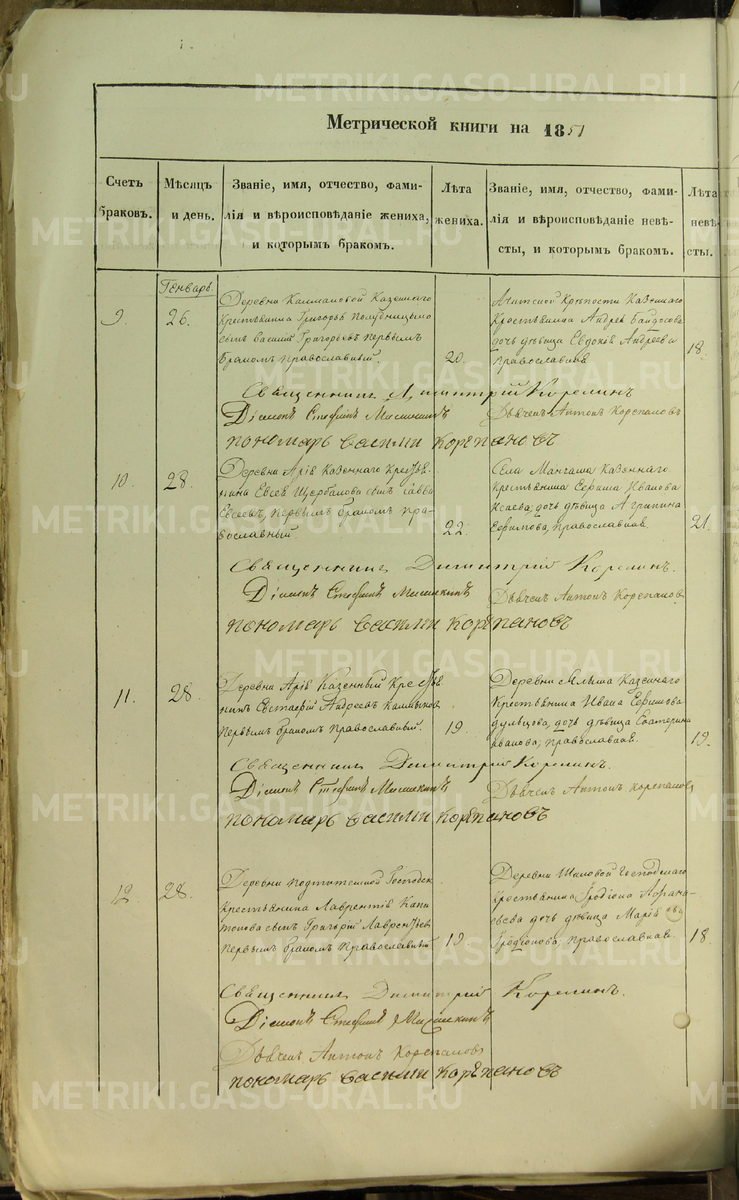 Метрической книги на 1851
Счетъ браковъ.
Мѣсяцъ и день.
Званіе, имя, отчество, фами-
лія и вѣроисповѣданіе жениха,
и которымъ бракомъ.
Лѣта жениха.
Званіе, имя, отчество, фами-
лія и вѣроисповѣданіе невѣ-
сты, и которымъ бракомъ.
Лѣта невѣ-
сты.
Генварь
9
26.
Деревни Калмаковой Казеннаго
Крестьянина Григорья
сынъ Василій Григорьевъ первымъ
бракомъ православный.
20.
Ачитской Крѣпости Казеннаго
Крестьянина Андрея Байдосова
дочь дѣвица Евдокія Андреева
православная
18.
Священникъ Димитрій Корелинъ
Діаконъ Стефанъ
Дьячекъ Антонъ Корепановъ
пономарь василий корѣпановъ
10.
28.
Деревни Арія Казеннаго Крестья-
нина Евсея Щербакова сынъ Савва
Евсеевъ, первымъ бракомъ пра-
вославный.
22.
Села Манчажа Казеннаго
Крестьянина Ефима Иванова
Исаева; дочь дѣвица Агрипина
Ефимова, православная.
21.
Священникъ Димитрій Корелинъ.
Діаконъ Стефанъ
Дьячекъ Антонъ Корепановъ
пономарь василий корѣпановъ
11.
28.
Деревни Арія Казенный Крестья-
нинъ Евстафій Андреевъ Калмыковъ
первымъ бракомъ православный.
19.
Деревни Казеннаго
Крестьянина Ивана Ефимова
дочь дѣвица Екатерина
Иванова; православная.
19.
Священникъ Димитрій Корелинъ.
Діаконъ Стефанъ
Дьячекъ Антонъ корепановъ
пономарь василий корѣпановъ
12.
28.
Деревни Господск
Крестьянина Лаврентія Капи
тонова сынъ Григорій Лаврентьев
первымъ бракомъ православный
19.
Деревни Шиповой Господскаго
Крестьянина Іродіона Афана-
сьева дочь дѣвица Марія
Іродіонова; православная.
18
Священникъ Димитрій Корелинъ.
Діаконъ Стефанъ
Дьячекъ Антонъ Корепановъ
пономарь василий корѣпановъ
METRIKI.GASO-URAL.RU